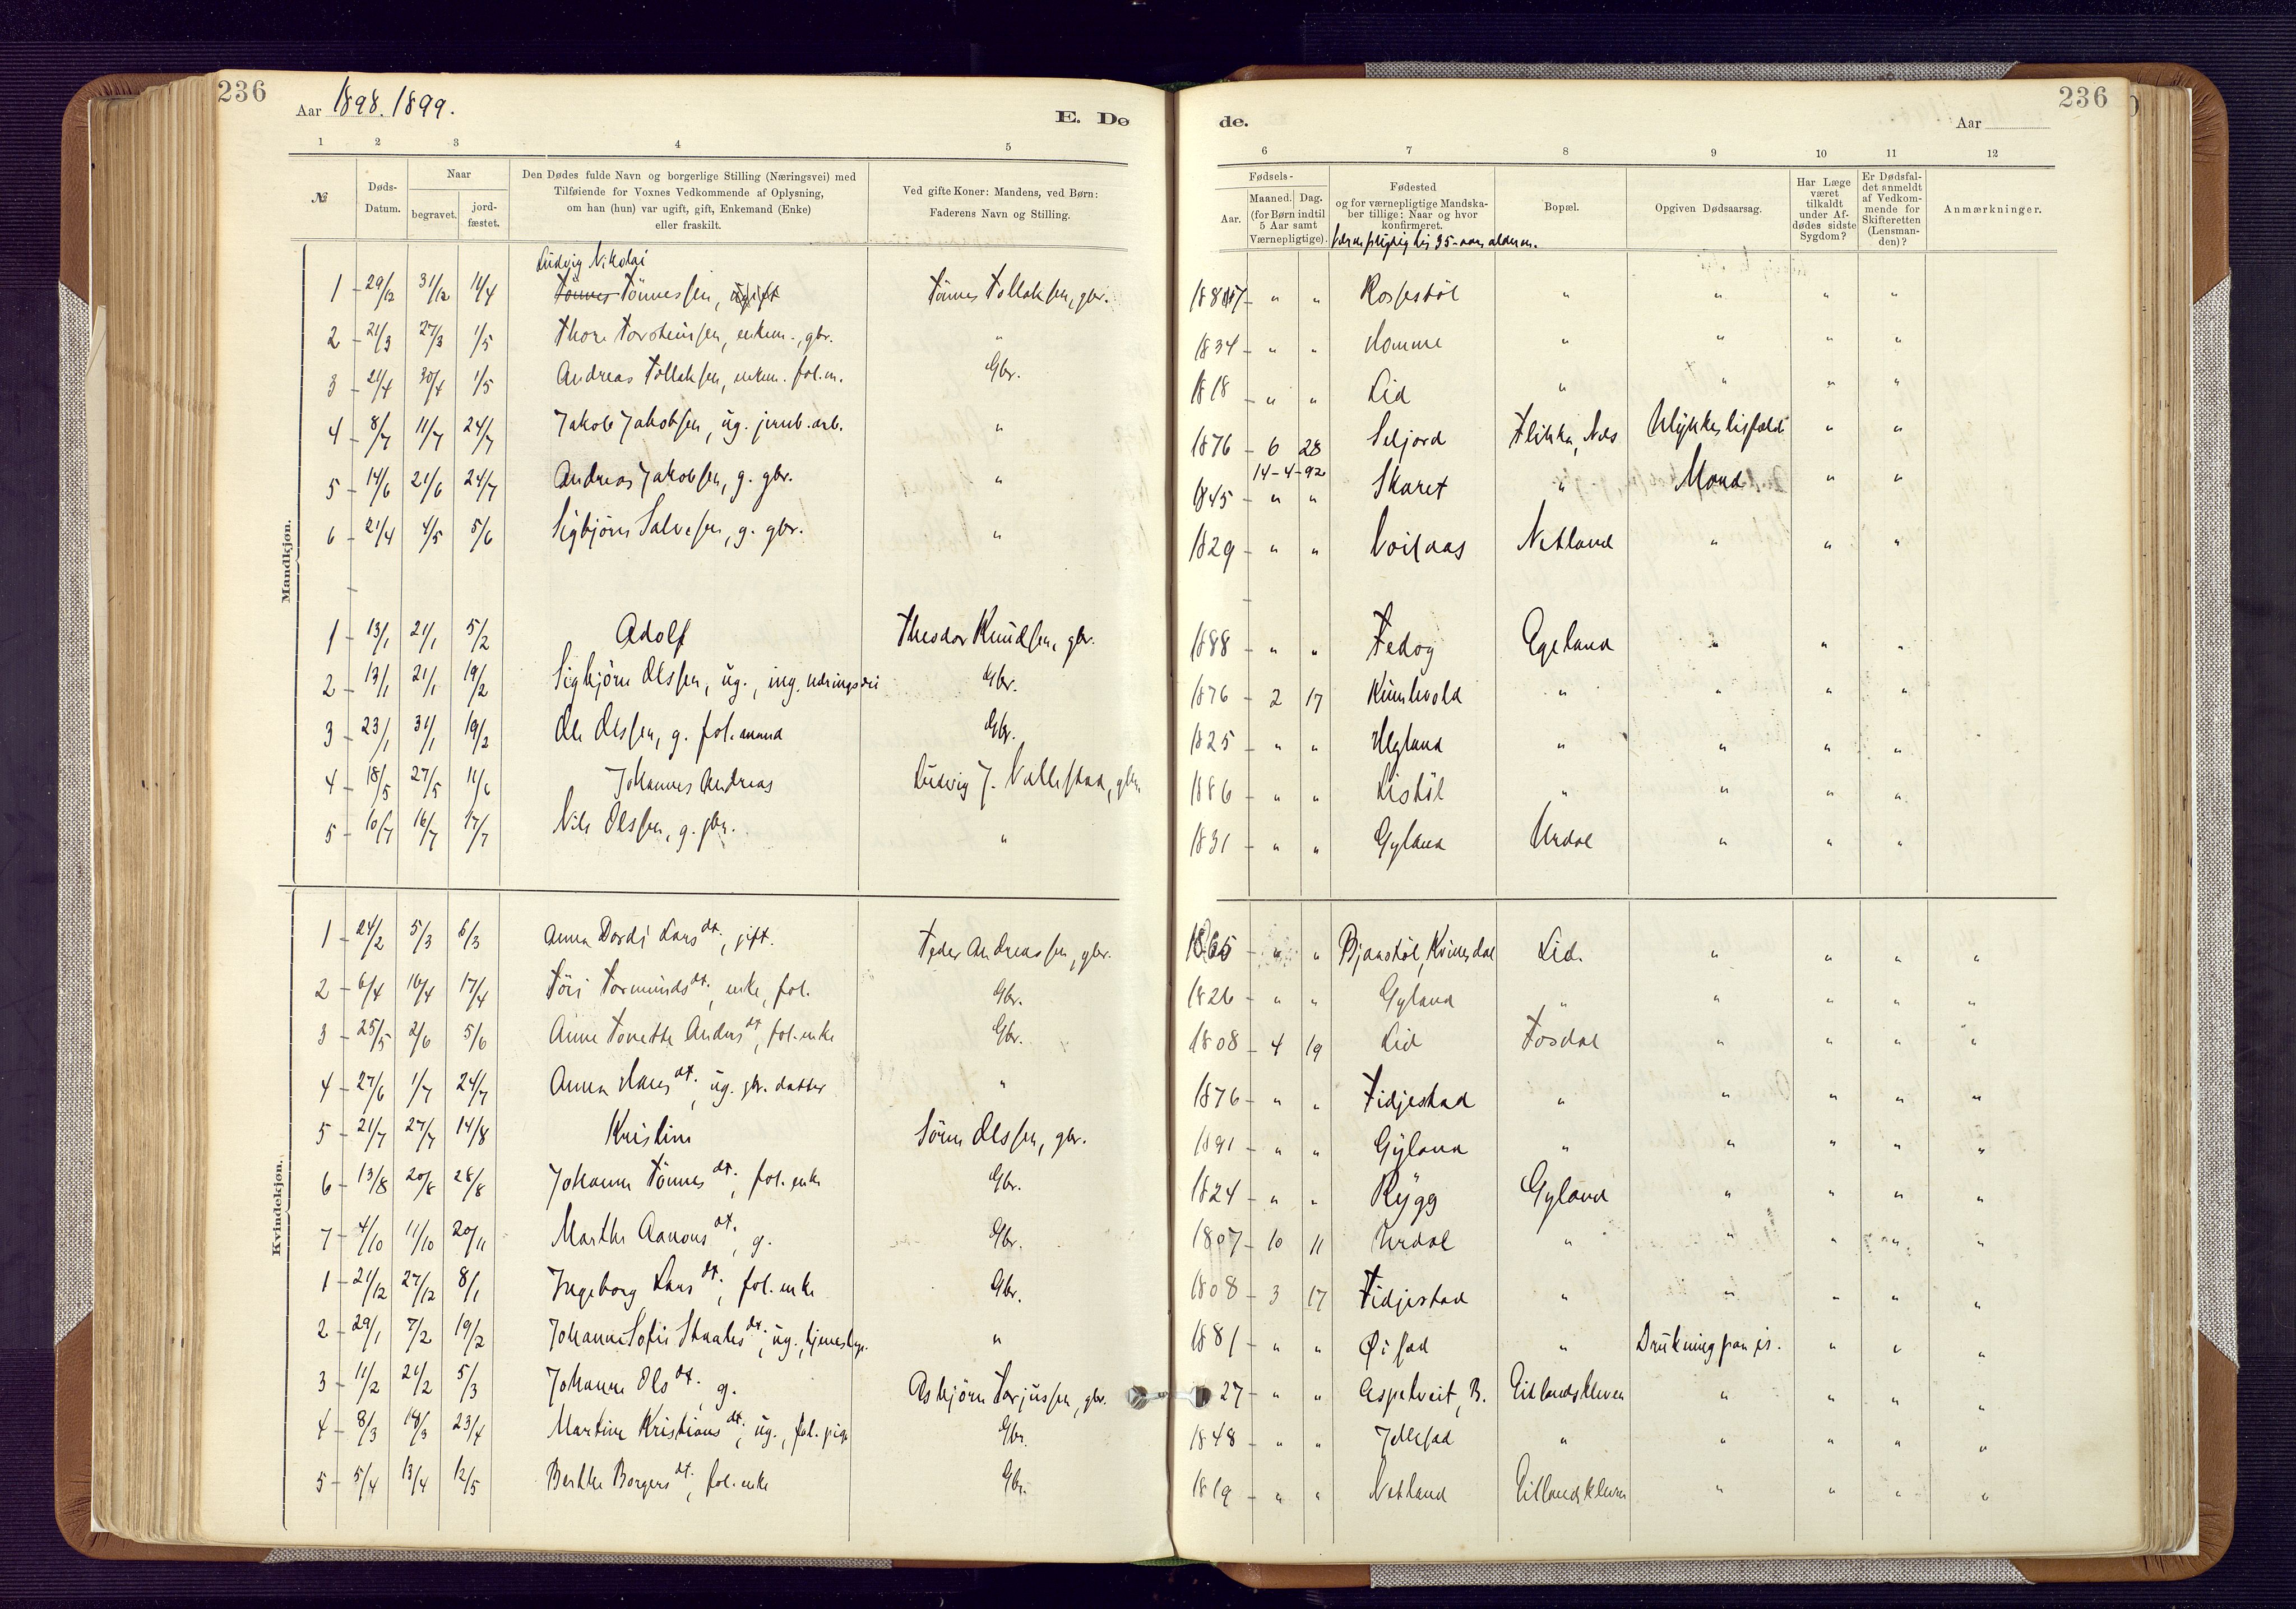 236
Aar 1898. 1899.
E. Dø
1 2 3 4 5
№
Døds-
Datum.
Naar
begravet.
jord-
fæstet.
Den Dødes fulde Navn og borgerlige Stilling (Næringsvei) med
Tilføiende for Voxnes Vedkommende af Oplysning,
om han (hun) var ugift, gift, Enkemand (Enke)
eller fraskilt.
Ved gifte Koner: Mandens, ved Børn:
Faderens Navn og Stilling.
Mandkjøn.
Ludvig Nikolai
1 29/12 31/12 11/4 Tönnes Tönnessen, ugift Tönnes Tollaksen, gbr.
2 21/3 27/3 1/5 Thore Torsteinsen, enkem., gbr. "
3 21/4 30/4 1/5 Andreas Tollaksen, enkem. fol.m. Gbr.
4 8/7 11/7 24/7 Jakob Jakobsen, ug. jernb.arb. "
5 14/6 21/6 24/7 Andreas Jakobsen, g. gbr. "
6 21/4 4/5 5/6 Sigbjörn Salvesen, g. gbr. "
1 13/1 21/1 5/2 Adolf Theodor Knudsen, gbr.
2 13/1 21/1 19/2 Sigbjörn Olssen, ug., ing. næringsvei Gbr.
3 23/1 31/1 19/2 Ole Olssen, g. fol.mand Gbr.
4 18/5 27/5 11/6 Johannes Andreas Ludvig J. Vallestad, gbr.
5 10/7 16/7 17/7 Nils Olssen, g. gbr. "
Kvindekjøn.
1 24/2 5/3 6/3 Anna Dordi Larsdt., gift. Peder Andreassen, gbr.
2 6/4 16/4 17/4 Töri Tormundsdt., enke, fol. Gbr.
3 25/5 2/6 5/6 Anne Tonette Andersdt, fol.enke Gbr.
4 27/6 1/7 24/7 Anna Hansdt., ug. gbr. datter "
5 21/7 27/7 14/8 Kristine Sören Olssen, gbr.
6 13/8 20/8 28/8 Johanne Tönnesdt., fol.enke Gbr.
7 4/10 11/10 20/11 Marthe Aanonsdt., g. Gbr.
1 21/12 27/12 8/1 Ingeborg Larsdt., fol.enke Gbr.
2 29/1 7/2 19/2 Johanne Sofie Staalesdt., ug., "
3 11/2 21/2 5/3 Johanne Olsdt. g. Asbjörn Torjussen, gbr.
4 8/3 18/3 23/4 Martine Kristiansdt., ug., fol. pige Gbr.
5 5/4 13/4 12/5 Berthe Borgersdt., fol.enke Gbr.
236
de.
Aar
6 7 8 9 10 11 12
Fødsels-
Aar.
Maaned. Dag.
(for Børn indtil
5 Aar samt
Værnepligtige).
Fødested
og for værnepligtige Mandska-
ber tillige: Naar og hvor
konfirmeret.
Værnepligtig til 35-aars alderen.
Bopæl.
Opgiven Dødsaarsag.
Har Læge
været
tilkaldt
under Af-
dødes sidste
Sygdom?
Er Dødsfal-
det anmeldt
af Vedkom-
mende for
Skifteretten
(Lensman-
den)?
Anmærkninger.
" " Rossestöl " " " "
1834 " " Homme " " " "
1818 " " Lid " " " "
1876 6 28 Seljord Flikka, Nes Ulykkestilfælde " "
14-4-92
1845 " " Skaret " Mord " "
1829 " " Netland " " "
1888 " " Fedog Egeland " " "
1876 2 17 Kumlevold " " " "
1825 " " Hegland " " " "
1886 " " Listöl " " " "
1831 " " Gyland Urdal " " "
1865 " " Bjaastöl, Kvinesdal Lid. " " " "
1826 " " Gyland " " " " "
1808 4 19 Lid Fosdal " " " "
1876 " " Tidjestad " " " " "
1891 " " Gyland " " " " "
1824 " " Rygg Gyland " " " "
1807 10 11 Urdal " " " " "
1808 3 17 Tidjestad " " " " "
1881 " " Öisad " Drukning paa is. " " "
27 " " Aspetveit, B. Eitlandskleven " " " "
1848 " " Jellesad " " " " "
1819 " " Netland Eitlandskleven " " " "